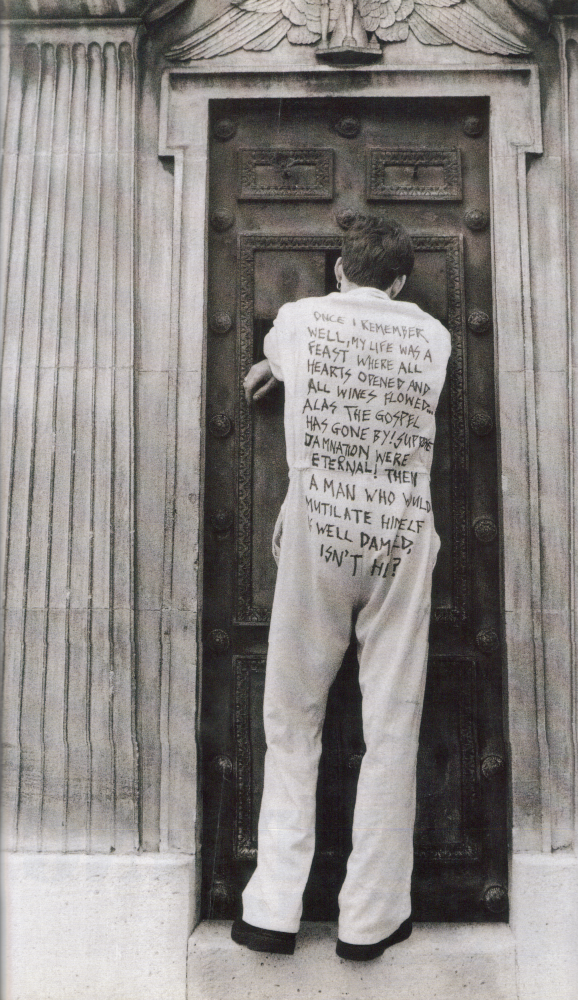 ONCE I REMEMBER
WELL, MY LIFE WAS A
FEAST WHERE ALL
HEARTS OPENED AND
ALL WINES FLOWED...
ALAS THE GOSPEL
HAS GONE BY! SUPPOSE
DAMNATION WERE
ETERNAL! THEN
A MAN WHO WULD
MUTILATE HIMELF
WELL DAMED,
ISN'T HE?